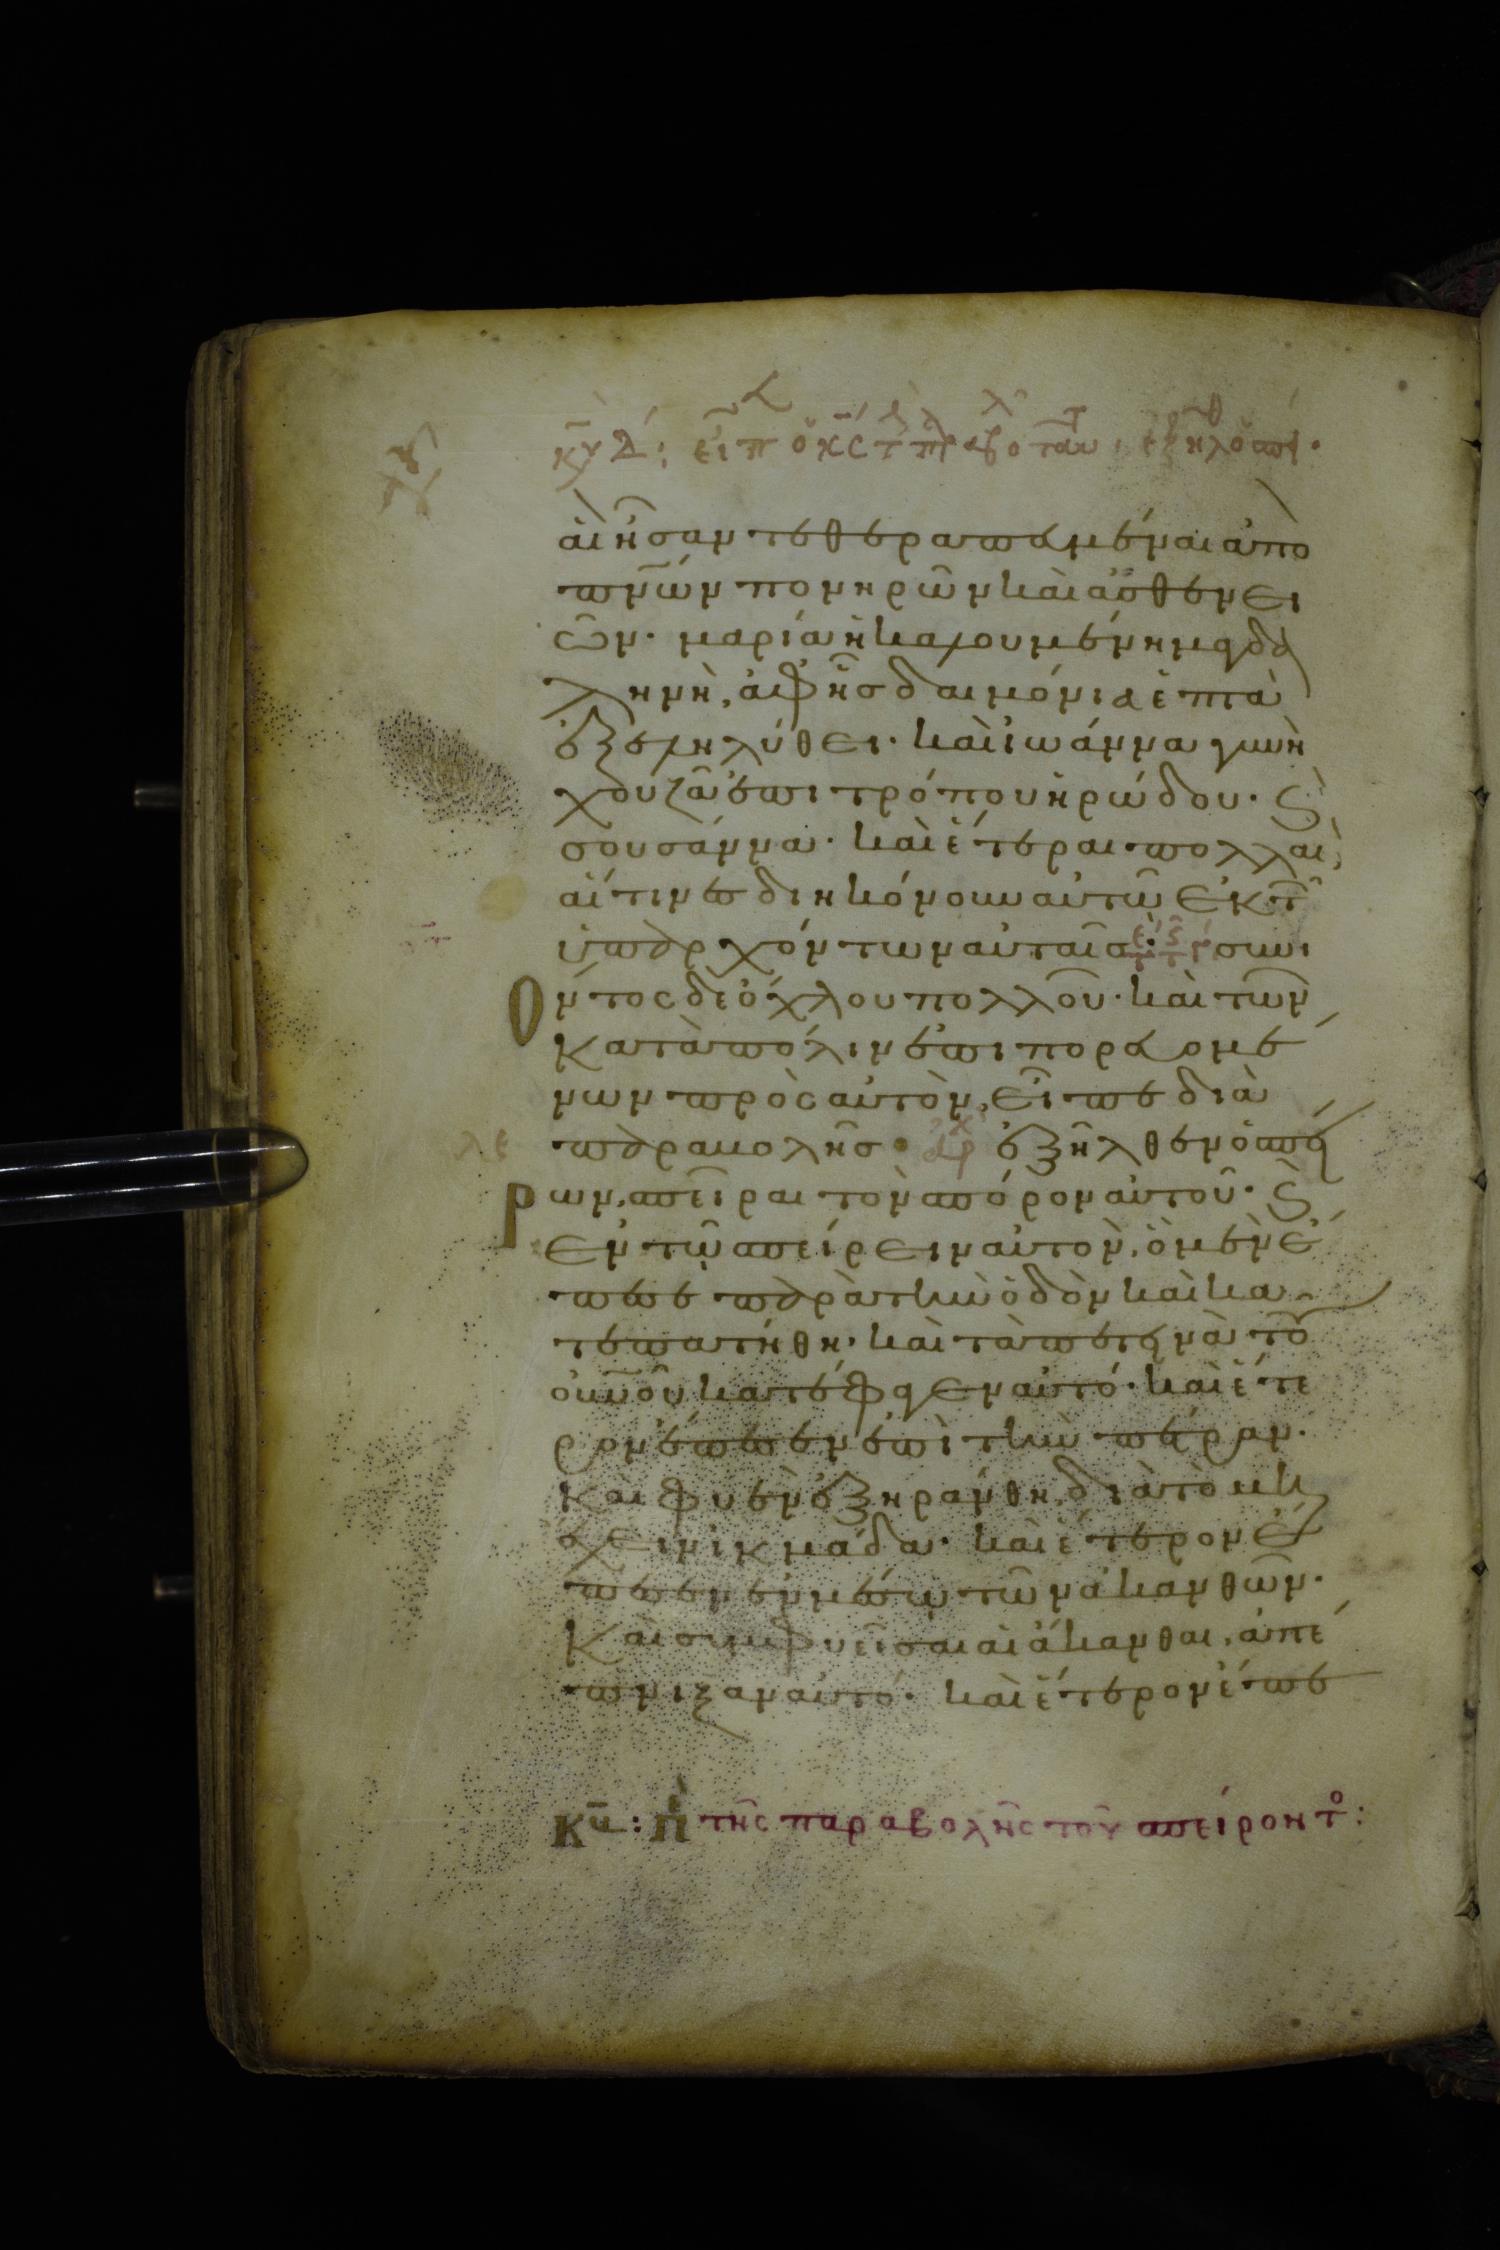 κυ δ: εἶπ ὁ κς τ παραβο ταυ
αἳ ἦσαν τεθεραπευμέναι ἀπὸ
πνῶν πονηρῶν καὶ ἀσθενει
ῶν· μαρία ἡ καλουμένη μαγδα
ληνὴ, ἀφ ἧς δαιμόνια ἑπτὰ
ἐξεληλύθει· καὶ ἰωάννα γυνὴ
χουζᾶ ἐπιτρόπου ἡρώδου· ϛ
σουσάννα· καὶ ἕτεραι πολλαὶ,
αἵτινες διηκόνουν αὐτῶ ἐκ τ
ὑπαρχόντων αὐταῖς συνι
όντος δε ὄχλου πολλοῦ· καὶ τῶν
κατὰ πόλιν ἐπιπορευομέ
νων πρὸς αὐτὸν, εἶπε διὰ
παραβολῆς· ἀρχ ἐξῆλθεν ὁ σπεί
ρων, σπεῖραι τὸν σπόρον αὐτοῦ· ϛ
ἐν τῶ σπείρειν αὐτὸν, ὃ μὲν ἔ
πεσε παρὰ τὴν ὁδὸν καὶ κα
τεπατήθη· καὶ τὰ πετεινὰ το
οὐνοῦ κατέφαγεν αὐτό· καὶ ἕτε
ρον ἔπεσεν ἐπὶ τὴν πέτραν·
καὶ φυὲν ἐξηράνθη, διὰ τὸ μὴ
ἔχειν ἰκμάδα· καὶ ἕτερον ἔ
πεσεν ἐν μέσω τῶν ἀκανθῶν·
καὶ συμφυεῖσαι αἱ ἄκανθαι, ἀπέ
πνιξαν αὐτό· καὶ ἕτερον ἔπε
κδ: π τῆς παραβολῆς τοῦ σπείροντο: